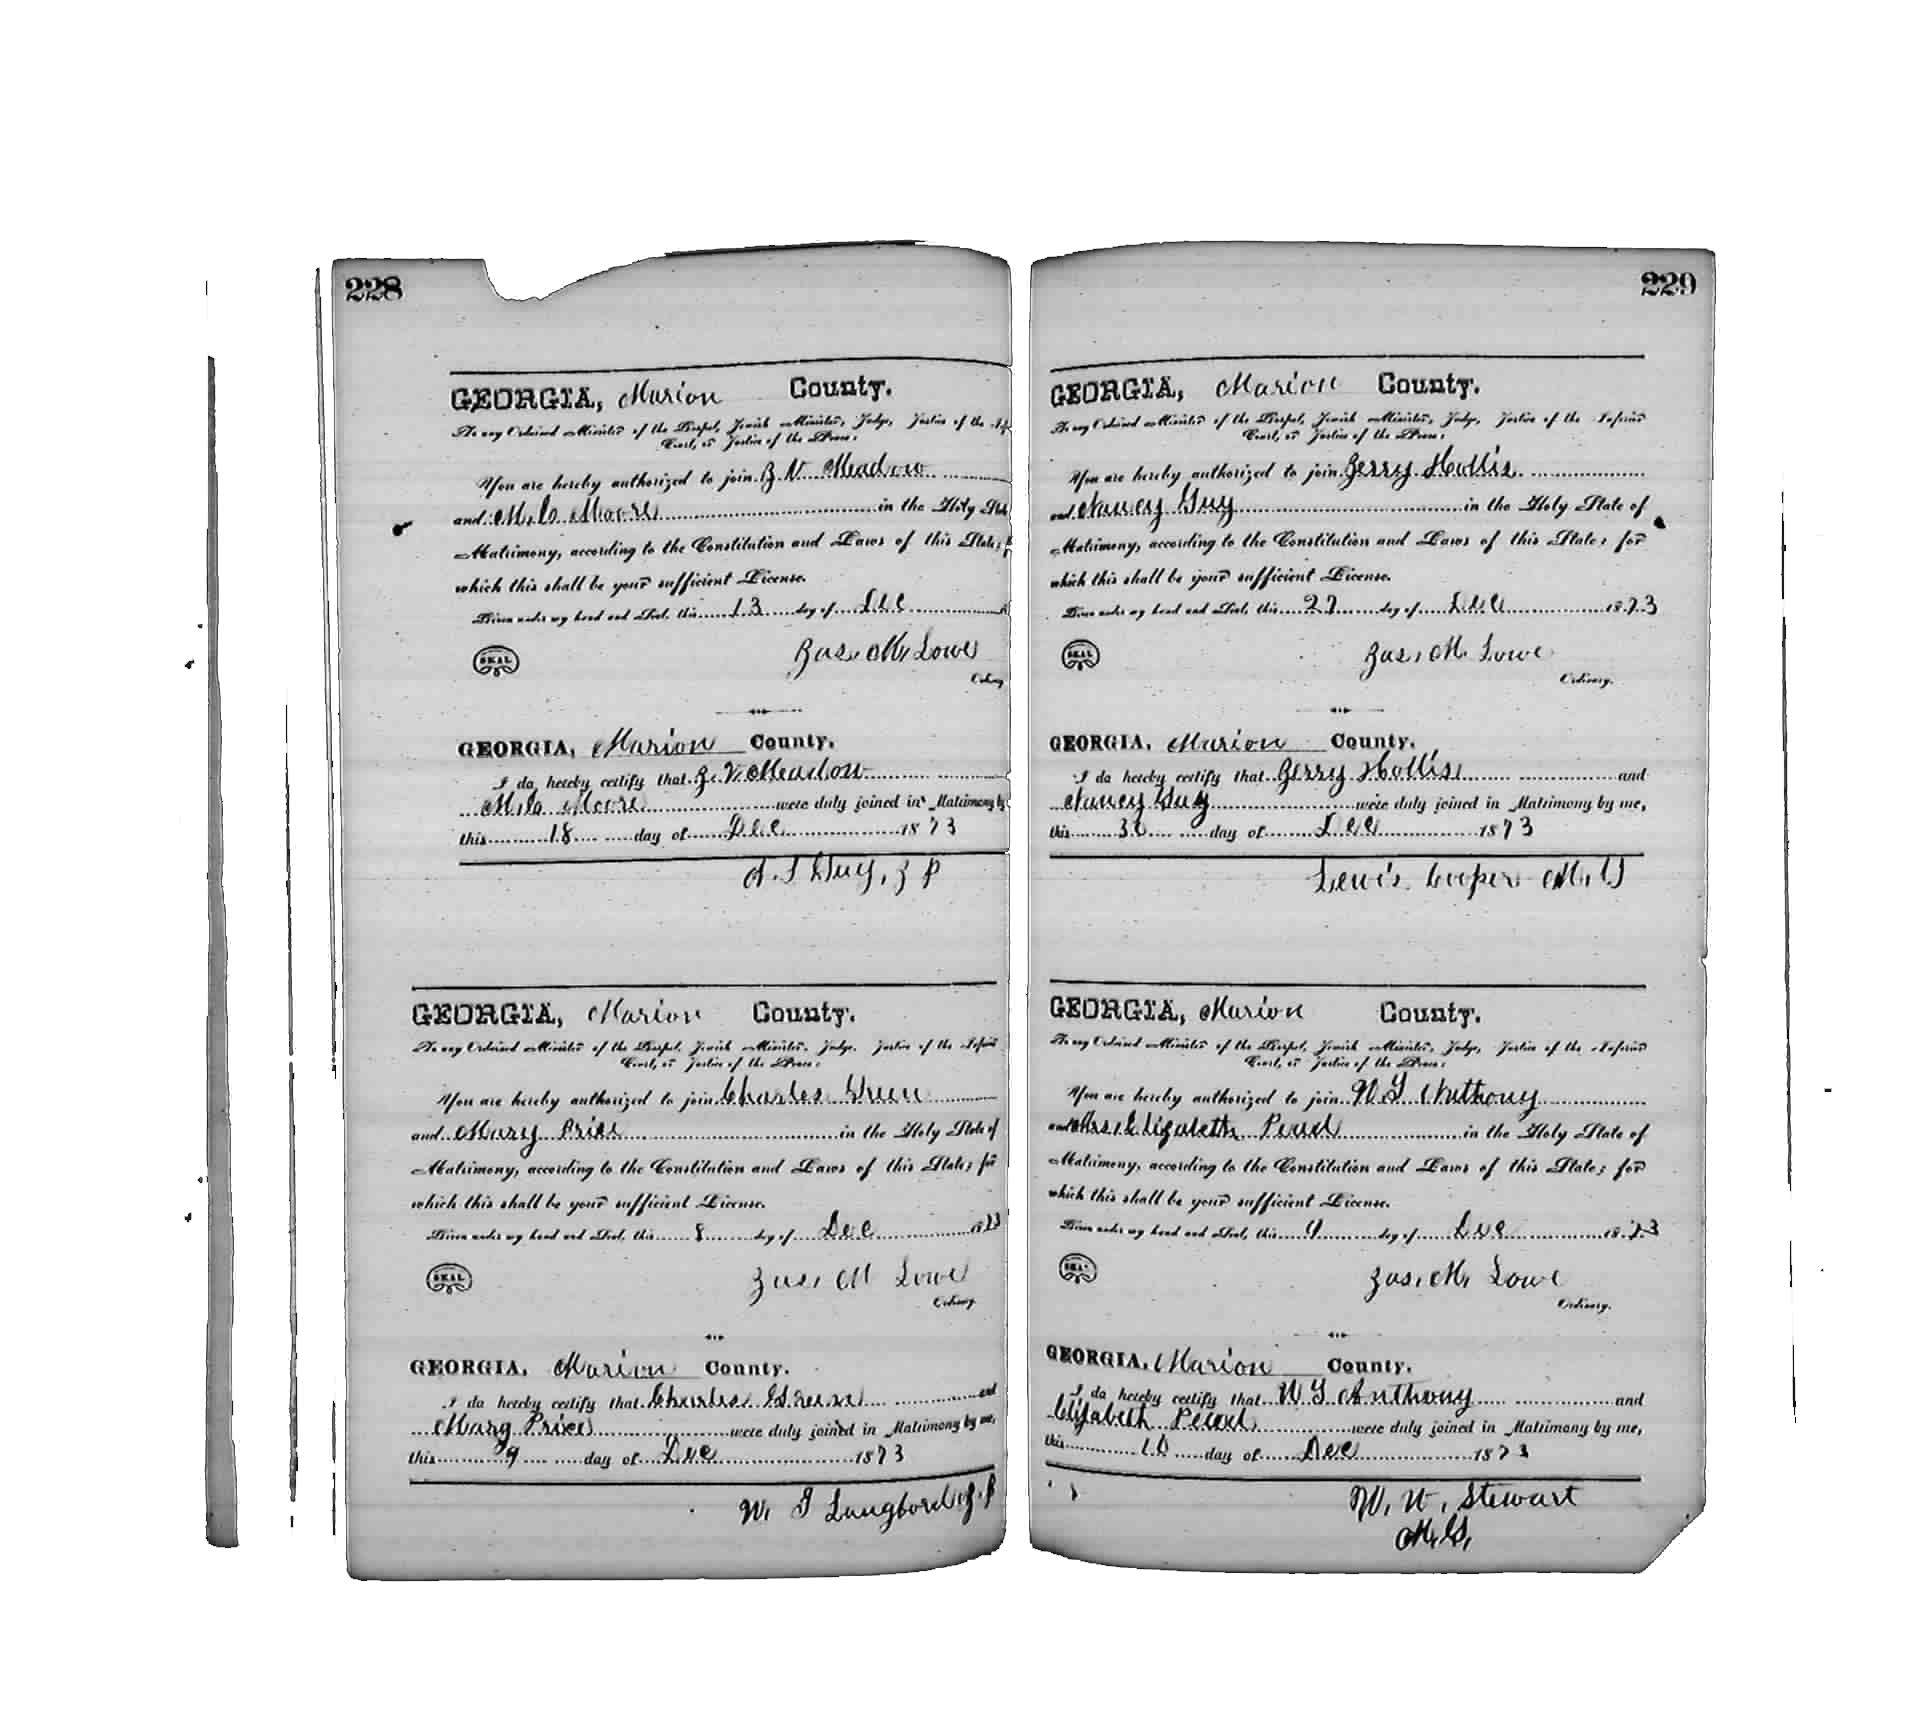 228
GEORGIA, Marion County.
To any Ordained Minister of the Gospel, Jewish Minister, Judge, Justice of the
Court, or Justice of the Peace:
You are hereby authorized to join J V Meadow
and M. C Moore in the Holy State
Matrimony, according to the Constitution and Laws of this State;
which this shall be your sufficient License.
Given under my hand and Seal, this 13 day of Dec
SEAL
Jas. M. Lowe
Ordinary
GEORGIA, Marion County.
I do hereby certify that J. V. Meadow
M. C Moore were duly joined in Matrimony by
this 18 day of Dec 1873
Guy, J P
GEORGIA, Marion County.
To any Ordained Minister of the Gospel, Jewish Minister, Judge, Justice of the Inferior
Court, or Justice of the Peace:
You are hereby authorized to join Charles Green
and Mary Price in the Holy State of
Matrimony, according to the Constitution and Laws of this State; for
which this shall be your sufficient License.
Given under my hand and Seal, this 8 day of Dec 1873
SEAL
Jas. M Lowe
Ordinary.
GEORGIA, Marion County.
I do hereby certify that Charles Green and
Mary Price were duly joined in Matrimony by me,
this 9 day of Dec 1873
W. T Langford J. P
229
GEORGIA, Marion County.
To any Ordained Minister of the Gospel, Jewish Minister, Judge, Justice of the Inferior
Court, or Justice of the Peace:
You are hereby authorized to join Jerry Hollis
and Nancy Guy in the Holy State of
Matrimony, according to the Constitution and Laws of this State; for
which this shall be your sufficient License.
Given under my hand and Seal, this 27 day of Dec 1873
SEAL
Jas. M. Lowe
Ordinary.
GEORGIA, Marion County.
I do hereby certify that Jerry Hollis and
Nancy Guy were duly joined in Matrimony by me,
this 30 day of Dec 1873
Lewis Cooper M. G
GEORGIA, Marion County.
To any Ordained Minister of the Gospel, Jewish Minister, Judge, Justice of the Inferior
Court, or Justice of the Peace:
You are hereby authorized to join W T Anthony
and Mrs. Elizabeth in the Holy State of
Matrimony, according to the Constitution and Laws of this State; for
which this shall be your sufficient License.
Given under my hand and Seal, this 9 day of Dec 1873
SEAL
Jas. M. Lowe
Ordinary.
GEORGIA, Marion County.
I do hereby certify that W T Anthony and
Elizabeth were duly joined in Matrimony by me,
this 10 day of Dec 1873
W. W. Stewart
M. G.